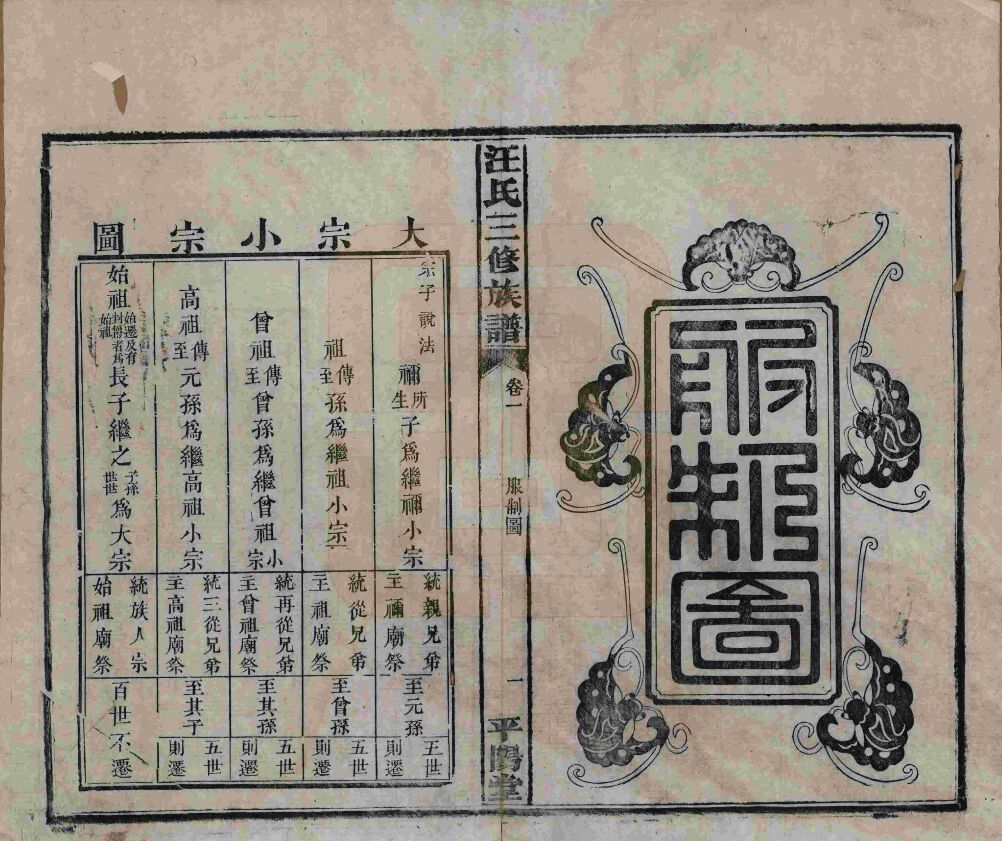 服制圖
汪氏三修族譜
卷一
服制圖
一
平陽堂
大宗小宗圖
宗子說法
禰所生子爲繼禰小宗
統親兄弟
主禰廟祭
至元孫
五世
則遷
祖傳至孫爲繼祖小宗
統從兄弟
主祖廟祭
至曾孫
五世
則遷
曾祖傳至曾孫爲繼曾祖小宗
統再從兄弟
主曾祖廟祭
至其孫
五世
則遷
高祖傳至元孫爲繼高祖小宗
統三從兄弟
主高祖廟祭
至其子
五世
則遷
始祖始遷及有封爵者爲始祖長子繼之子孫世世爲大宗
統族人宗
始祖廟祭
百世不遷